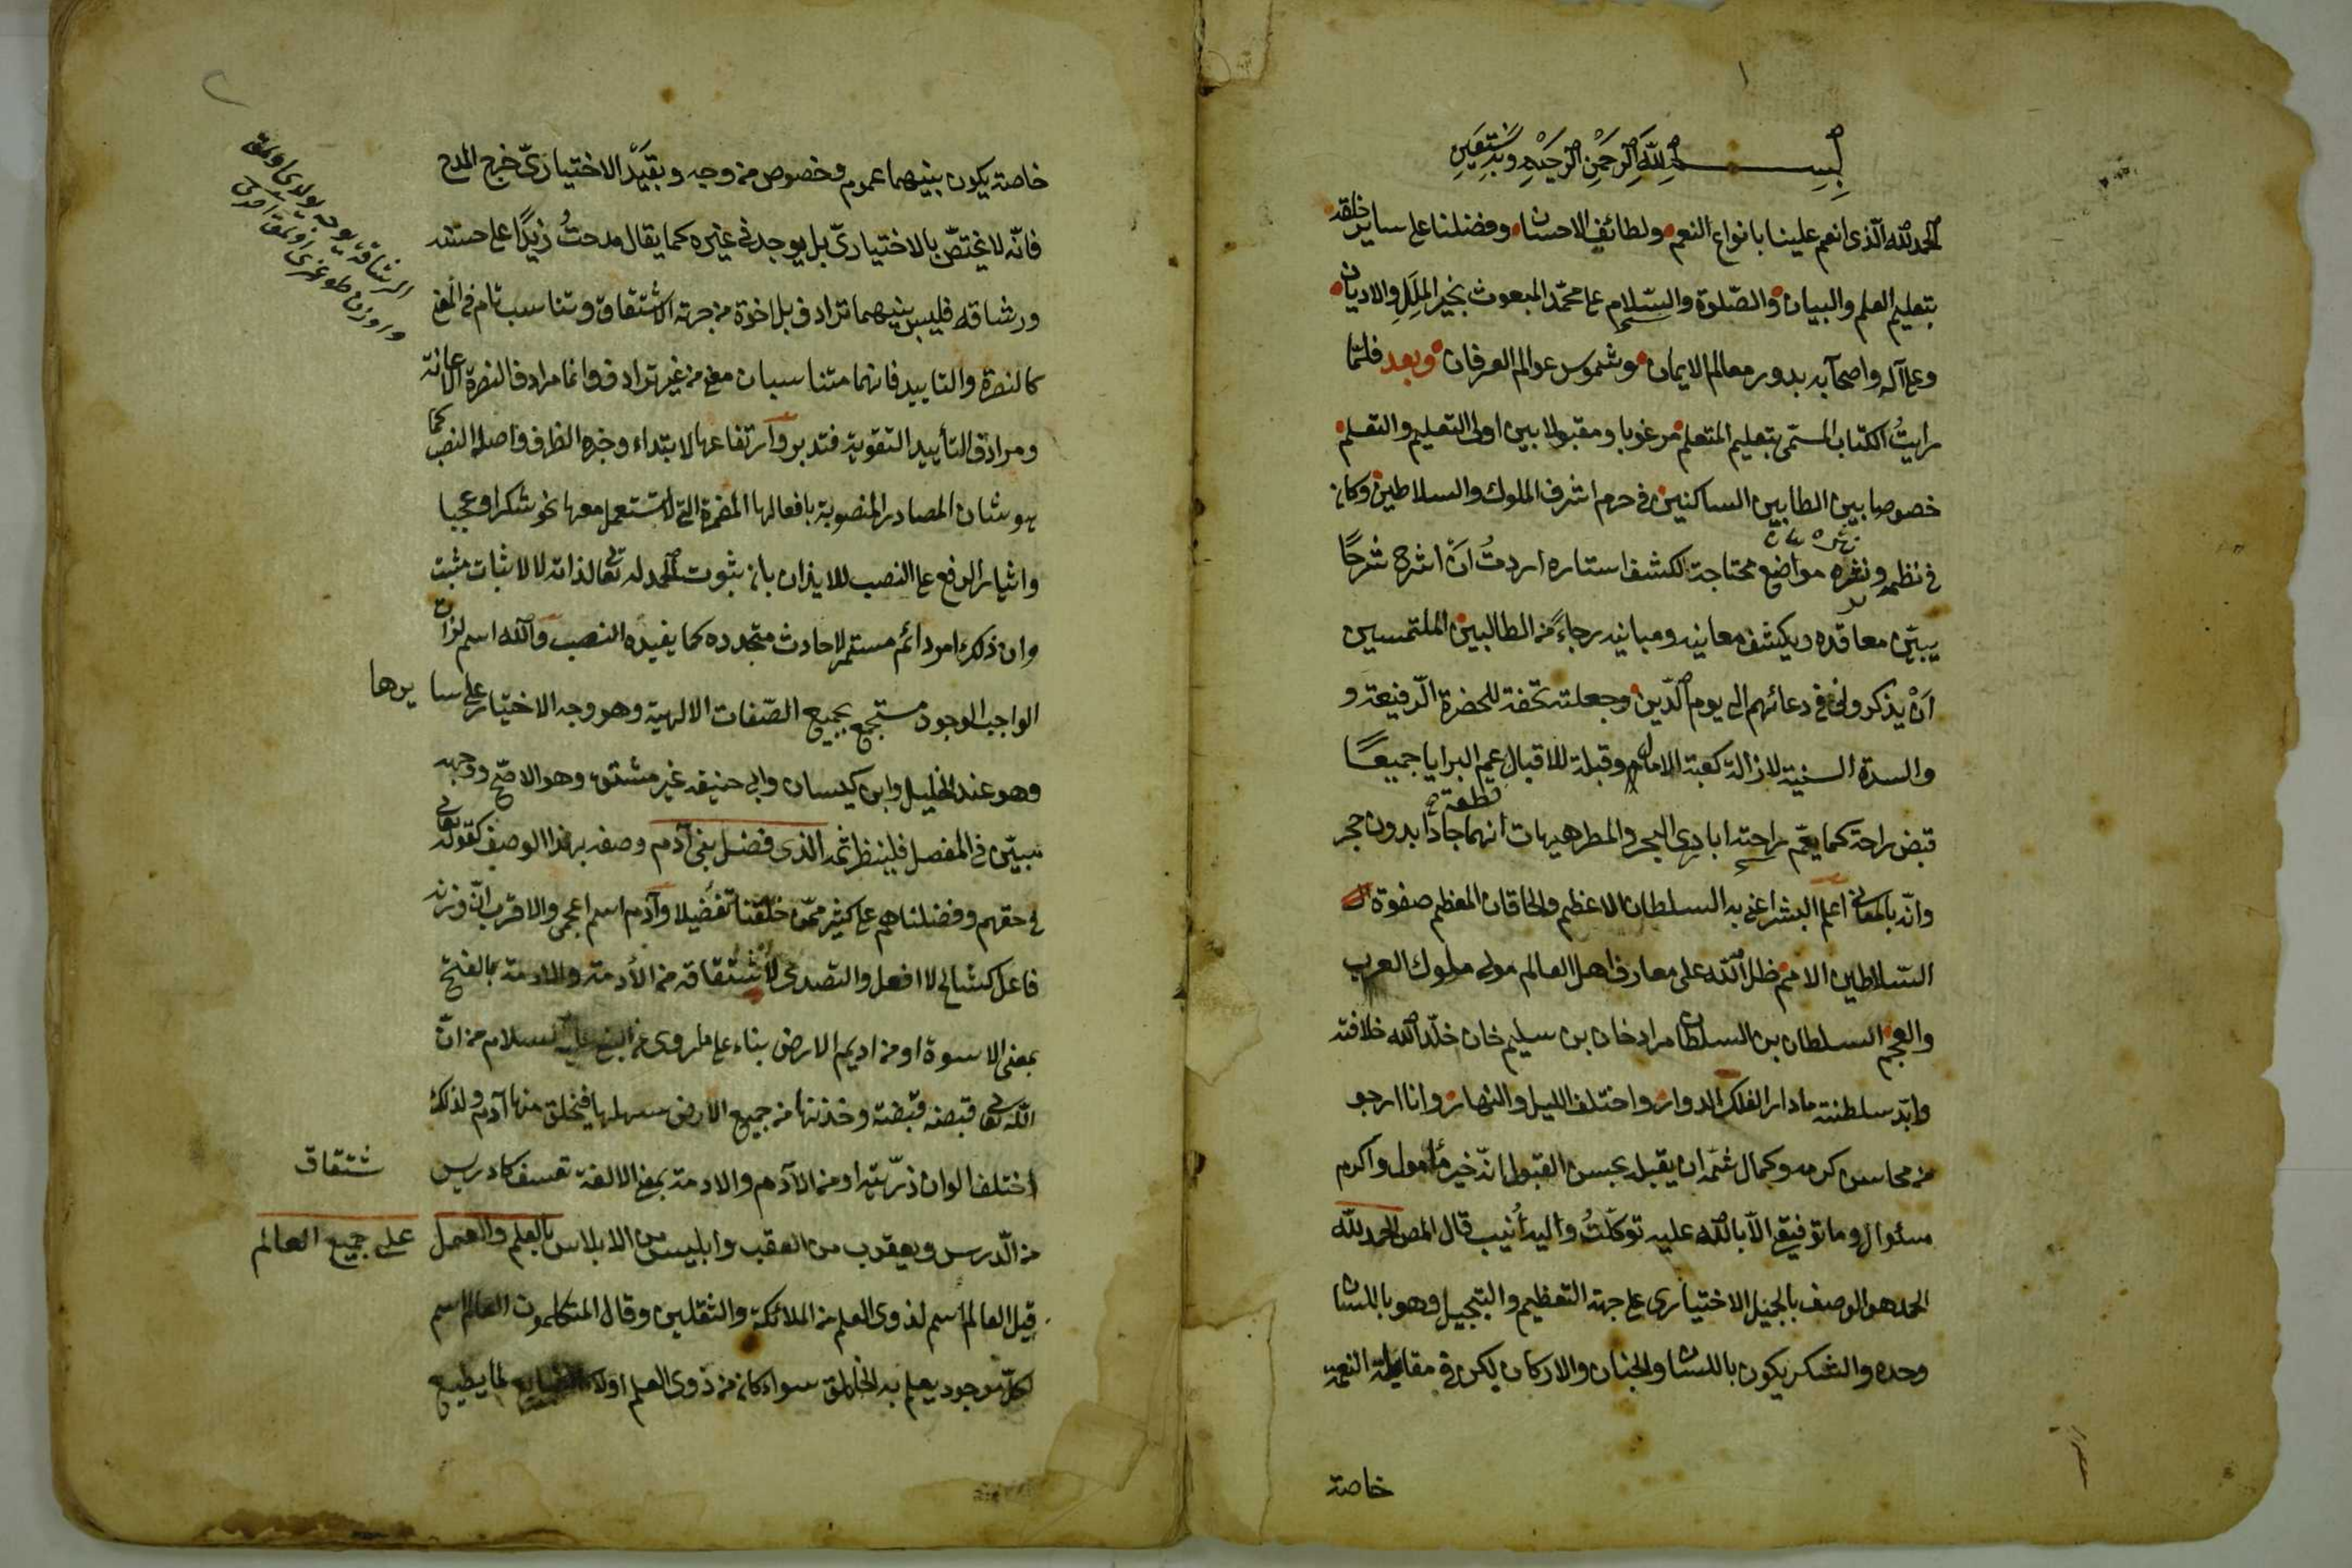 ١
بسم الله الرحمن الرحيم وبه نستعين
الحمد لله الذى انعم علينا بانواع النعم ولطائف الاحسان وفضلنا على ساير خلقه
بتعليم العلم والبيان والصّلوة والسّلام على محمّد المبعوث بخير الملل والاديان
وعلى آله واصحابه بدور معالم الايمان وشموس عوالم العرفان وبعد فلمّا
رايتُ الكتاب المسمّى بتعليم المتعلم مرغوبا ومقبولا بين اولى التعليم والتعلم
خصوصا بين الطالبين الساكنين فى حرم اشرف الملوك والسلاطين وكان
فى نظمه ونثره مواضع محتاجة لكشف استاره اردتُ اَنْ اشرح شرحًا
يبيّن معاقده ويكشف معانيه ومبانيه رجاءً من الطالبين الملتمسين
اَنْ يذكرونى فى دعائهم الى يوم الدّين وجعلته تحفة للحضرة الرّفيعة و
والسدة السنية لازالت كعبة الامال وقبلة للاقبال عم البرايا جميعًا
قطعة
قبض راحة كما يعمّ راحته ايادى البحر والمطر هيهات انهما جادا بدون حجر
وانّه بالمعانى اعلم البشر اعنى به السلطان الاعظم والخاقان المعظم صفوة
السّلاطين الامم ظل الله على معارف اهل العالم مولى ملوك العرب
والعجم السلطان بن السلطان مراد خان بن سليم خان خلّد الله خلافته
وابّد سلطنته ما دار الفلك الدوار واختلف الليل والنهار وانا ارجو
من محاسن كرمه وكمال شيمه ان يقبله بحسن القبول انه خير مأمول واكرم
مسئول وما توفيقى الّا بالله عليه توكّلتُ واليه اُنيب قال المص الحمد لله
الحمد هو الوصف بالجميل الاختيارى على جهة التعظيم والتبجيل وهو باللسان
وحده والشكر يكون باللسان والجنان والاركان لكن فى مقابلة النعمة
خاصة
٢
خاصة يكون بينهما عموم وخصوص من وجه وبقيد الاختيارىّ خرج المدح
فانّه لا يختصّ بالاختيارىّ بل يوجد فى غيره كما يقال مدحتُ زيدًا على حسنه
ورشاقه فليس بينهما ترادف بل اخوة من جهة الاشتقاق وتناسب تام فى المعنى
كالنصرة والتاييد فانهما متناسبان معنى من غير ترادف وانما مرادف النصرة الاعانة
ومرادف التأييد التقوية فتدبر وارتفاعها لابتداء وخبره الظرف واصله النصب كما
هو شان المصادر المنصوبة بافعالها المضمرة التى لا تستعمل معها نحو شكرا وعجبا
وايثار الرفع على النصب للايذان بان ثبوت الحمد له تعالى لذاته لا لاثبات مثبت
وان ذلك امر دائم مستمر لا حادث متجدد كما يفيده النصب والله اسم لذات
الواجب الوجود مستجمع بجميع الصّفات الالهية وهو وجه الاختيار على سايرها
وهو عند الخليل وابن كيسان وابى حنيفه غير مشتق وهو الاصّح ووجهه
مبيّن فى المفصل فلينظر ثمه الذى فضل بنى آدم وصفه بهذا الوصف كقوله تعالى
فى حقهم وفضلناهم على كثير ممّن خلقنا تفضيلا وآدم اسم اعجمى والاقرب انّ وزنه
فاعل كشالح لا افعل والتصدى لاشتقاقه من الأدمة والادمة بالفتح
بمعنى الاسوة او من اديم الارض بناء على ما روى عن النبى عليه السلام من انّ
الله تعالى قبض قبضة من جميع الارض سهلها فخلق منها آدم ولذلك
اختلف الوان ذرّيته او من الآدم والادمة بمعنى الالفة تعسف كادريس
شتقاق
من الدّرس ويعقوب من العقب وابليس من الابلاس بالعلم والعمل على جميع العالم
قيل العالم اسم لذوى العلم من الملائكة والثقلين وقال المتكلمون العالم اسم
لكل موجود يعلم به الخالق سواء كان من ذوى العلم اولا لما يطبع